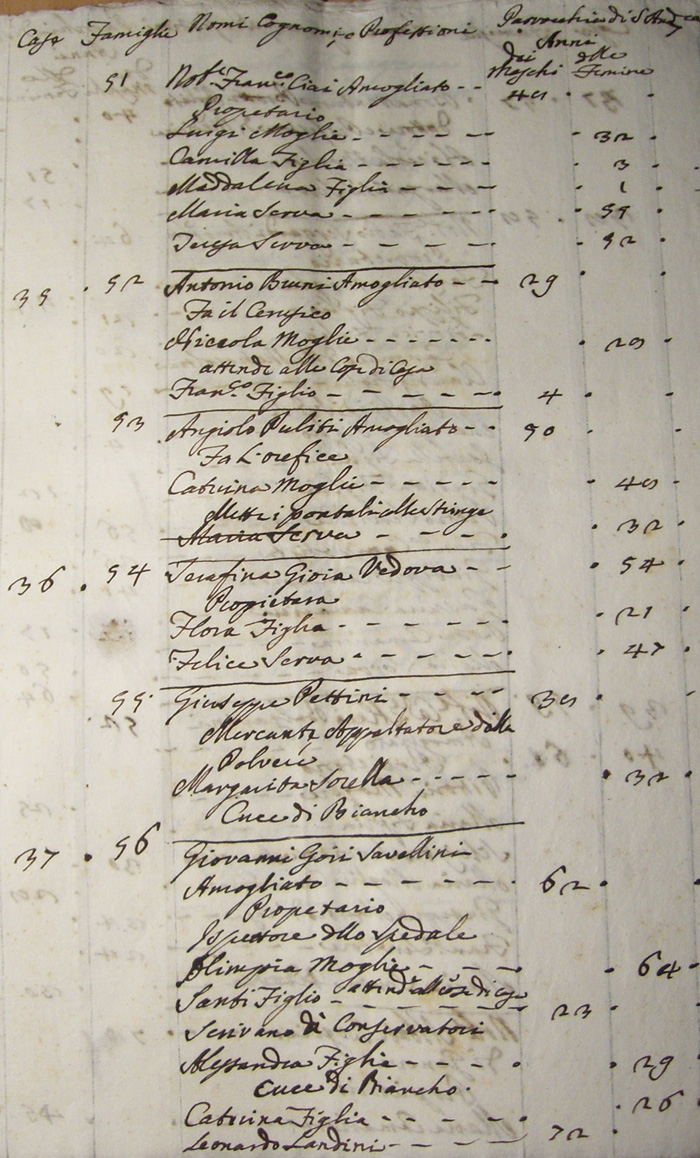 Case Famiglie Nomi Cognomi, e Professioni Parrocchia di S. And
Anni
dei Maschi delle Femine
51 Nob.e Fran.co Ciai Amogliato - - 40
Propetario
Luigi Moglie - - - - - - 32
Camilla Figlia - - - - - - 3
Maddalena Figlia - - - 1
Maria Serva - - - - - - 55
Teresa Serva - - - - - 52
35 52 Antonio Bruni Amogliato - - 29
Fa il Cerusico
Niccola Moglie - - - - - - 20
attende alle Cose di Casa
Fran.co Figlio - - - - - - 4
53 Angiolo Puliti Amogliato - - 50
Fa L'orefice
Caterina Moglie - - - - - - 40
Mette i pontali alle Stringe
Maria Serva - - - - 32
36 54 Serafina Gioia Vedova - - 54
Propietara
Flora Figlia - - - - - - 21
Felice Serva - - - - - - 47
55 Giuseppe Pettini - - - - 30
Mercante, Appaltatore della
Polvere
Margarita Sorella - - - - - 32
Cuce di Biancho
37 56 Giovanni Gori Savellini
Amogliato - - - - - - 62
Propetario
Ispettore dllo Spedale
Olimpia Moglie - - - - 64
attende alle Cose di Casa
Santi Figlio - - - - - - 23
Scrivano di Conservatori
Alessandra Figlia - - - - 29
Cuce di Biancho.
Caterina Figlia - - - - - 26
Leonardo Landini - - - - 72